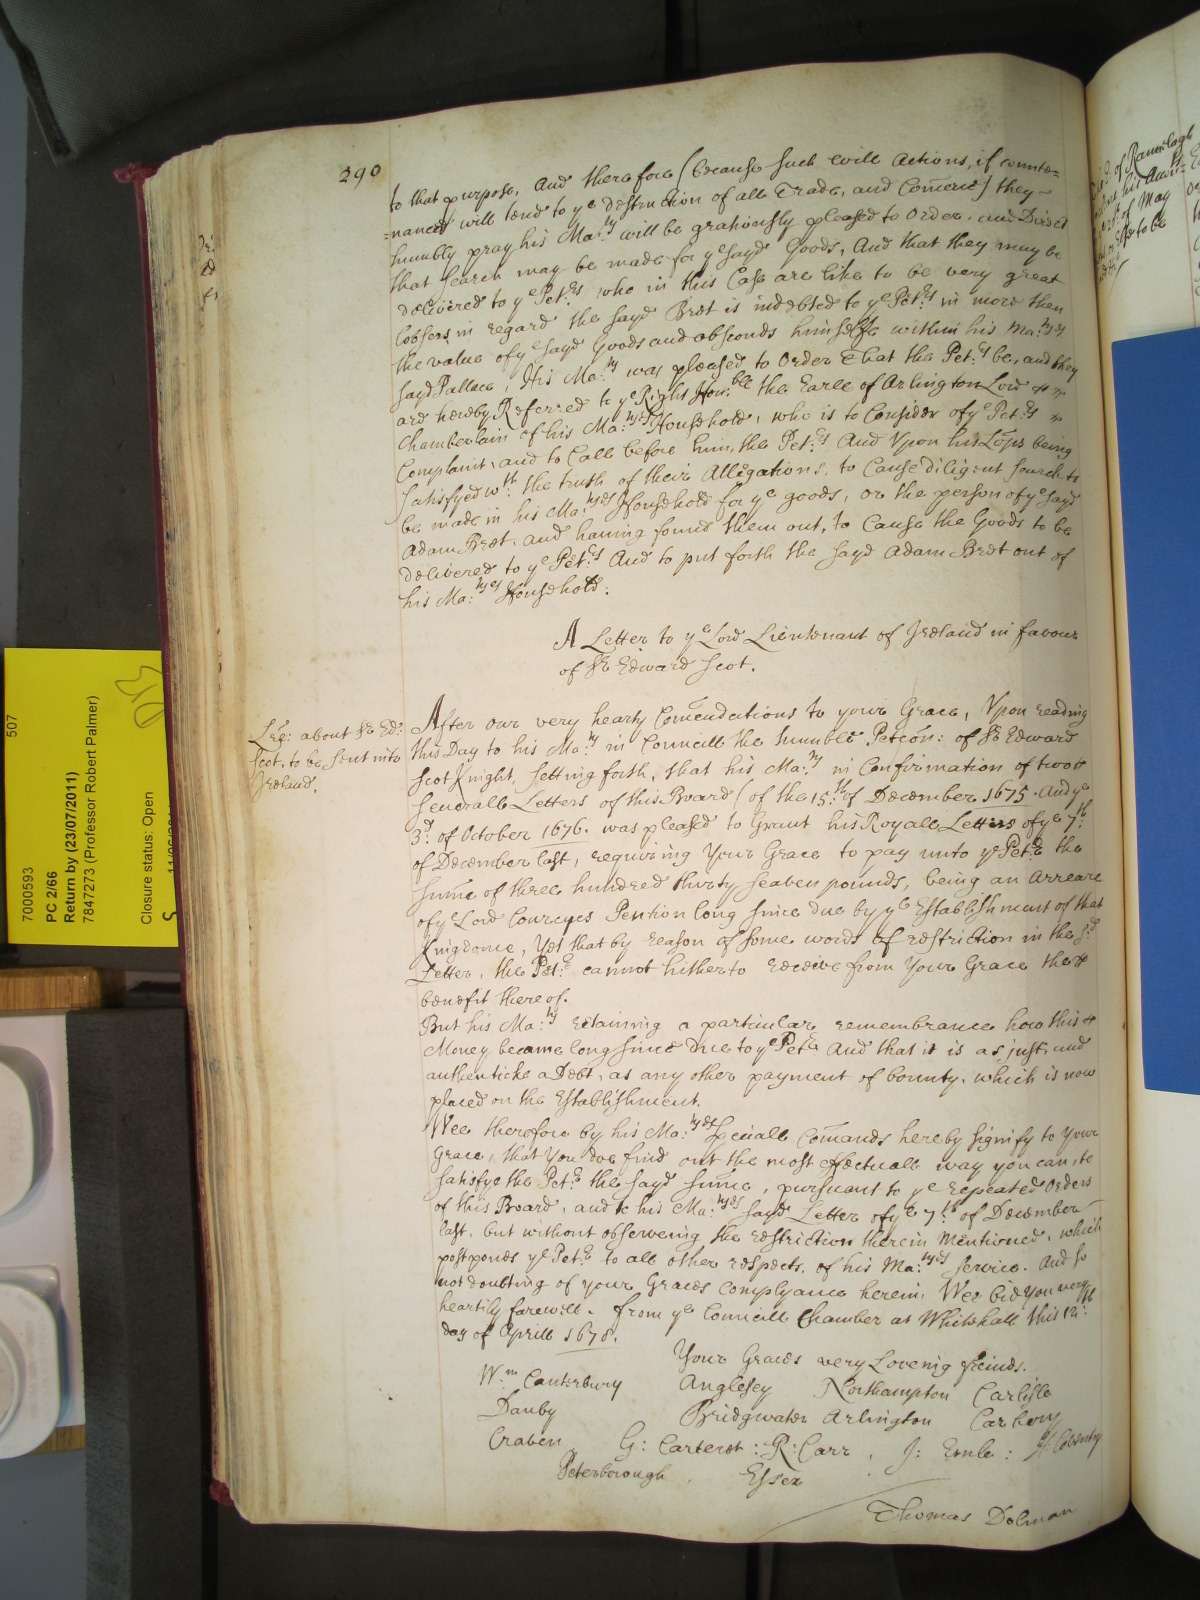 290
to that purpose, And therefore (because such evill Actions, if counte=
=nanced will tend to ye destruction of all Trade, and Comerce) they
humbly pray his Ma:ty will be gratiously pleased to Order, and Direct
that Search may be made for ye sayd Goods, And that they may be
delivered to ye Pet:rs who in this Case are like to be very great
Loosers in regard the sayd Bret is indebted to ye Pet:rs in more then
the value of ye sayd Goods and absconds himselfe within his Ma:tyes
sayd Pallace, His Ma:ty was pleased to Order that the Pet:rs be, and they
are hereby Referred to ye Right Hon:ble the Earle of Arlington Lord
Chamberlain of his Ma:tyes Household, who is to Consider of ye Pet:rs
Complaint, and to Call before him, the Pet:rs And Upon his Lo:ps being
satisfyed wth: the truth of their Allegations, to Cause diligent search to
be made in his Ma:tyes Household for ye goods, or the person of ye sayd
Adam Bret, and having found them out, to Cause the Goods to be
delivered to ye Pet:rs And to put forth the sayd Adam Bret out of
his Ma:tyes Household:
A Letter to ye Lord Lieutenant of Ireland in favour
of Sr Edward Scot.
Lre: about Sr Ed:
Scot, to be sent into
Ireland.
After our very hearty Comendations to your Grace, Upon reading
this Day to his Ma:ty in Councill the humble Petcon: of Sr Edward
Scot Knight, setting forth, that his Ma:ty in Confirmation of two
severall Letters of this Board (of the 15:th of December 1675. And ye
3d: of October 1676. was pleased to Grant his Royall Letters of ye 7:th
of December last, requiring Your Grace to pay unto ye Pet:r the
sume of three hundred thirty seaven pounds, being an Arreare
of ye Lord Courcyes Pention long since due by ye Establishment of that
Kingdome, Yet that by reason of some words of restriction in the sd
Letter, the Pet:r cannot hitherto receive from Your Grace the
benefit thereof.
But his Ma:ty retaining a particular remembrance how this
Money became long since Due to ye Pet:r And that it is as just, and
authenticke a Debt, as any other payment of bounty, which is now
placed on the Establishment.
Wee therefore by his Ma:tyes Speciall Comands hereby signify to Your
Grace, that You doe find out the most effectuall way you can, to
satisfye the Pet:r the sayd sume, pursuant to ye repeated Orders
of this Board, and to his Ma:tyes sayd Letter of ye 7th of December
last, but without observeing the restriction therein Mentioned, which
postponds ye Pet:r to all other respects, of his Ma:tyes Service. And so
not doubting of your Graces complyance herein, Wee bid you very
heartily farewell. from ye Councill Chamber at Whitehall this 12:th
day of Aprill 1678.
Your Graces very Loveing freinds.
Wm: Canterbury Anglesey Northampton Carlisle
Danby Bridgwater Arlington Carbery
Craven G: Carteret: R: Carr, J: Ernle: H: Coventry
Peterborough. Essex
Thomas Dolman
of Ranelagh
of May
to be
507
7000593
PC 2/66
Return by (23/07/2011)
7847273 (Professor Robert Palmer)
Closure status: Open